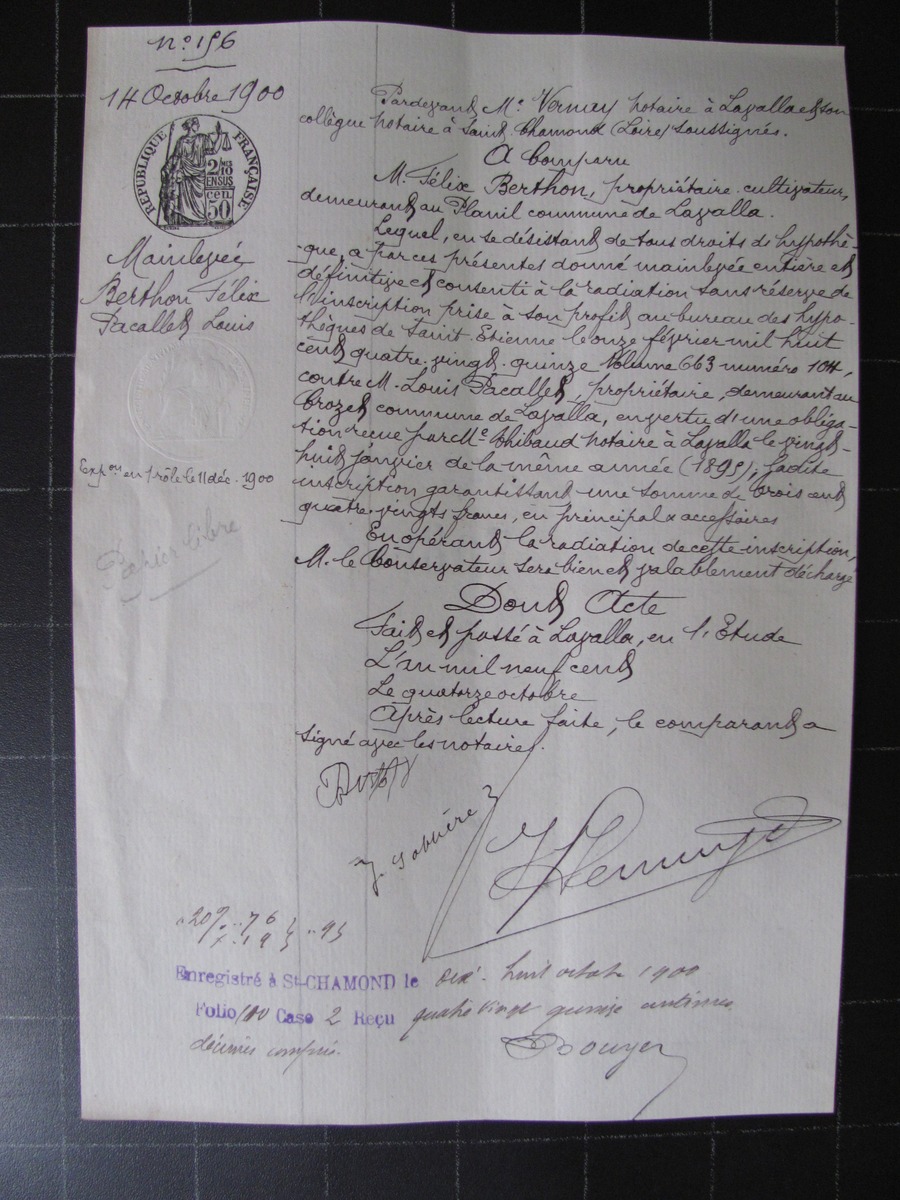 nº 196
14 Octobre 1900
RÉPUBLIQUE FRANÇAISE
2/10 EN SUS
50 cen
Mainlevée
Berthon Félix
Pacallet Louis
Exp.on en 1 rôle le 11 déc. 1900
Papier libre
Pardevant Me Vernay notaire à Lavalla et son
collègue notaire à Saint Chamond (Loire) soussignés.
A Comparu
M. Félix Berthon, propriétaire-cultivateur,
demeurant au Planil commune de Lavalla.
Lequel, en se désistant de tous droits de hypothè-
-que, a par ces présentes donné mainlevée entière et
définitive et consenti à la radiation sans réserve de
l'inscription prise à son profit au bureau des hypo-
thèques de Saint-Etienne le onze février mil huit
cent quatre-vingt-quinze Volume 663 numéro 104,
contre M. Louis Pacallet, propriétaire, demeurant au
Crozet commune de Lavalla, en vertu d'une obliga-
tion reçue par Me Thibaud notaire à Lavalla le vingt
huit janvier de la même année (1895); ladite
inscription garantissant une somme de trois cent
quatre-vingts francs, en principal & accessoires
En opérant la radiation de cette inscription,
M. le Conservateur sera bien et valablement déchargé
Dont Acte
Fait et passé à Lavalla, en l'Etude
L'an mil neuf cent
Le quatorze octobre
Après lecture faite, le comparant a
signé avec les notaires.
Enregistré à St-CHAMOND le dix-huit octobre 1900
Folio 100 Case 2 Reçu quatre vingt quinze centimes
décimes compris.